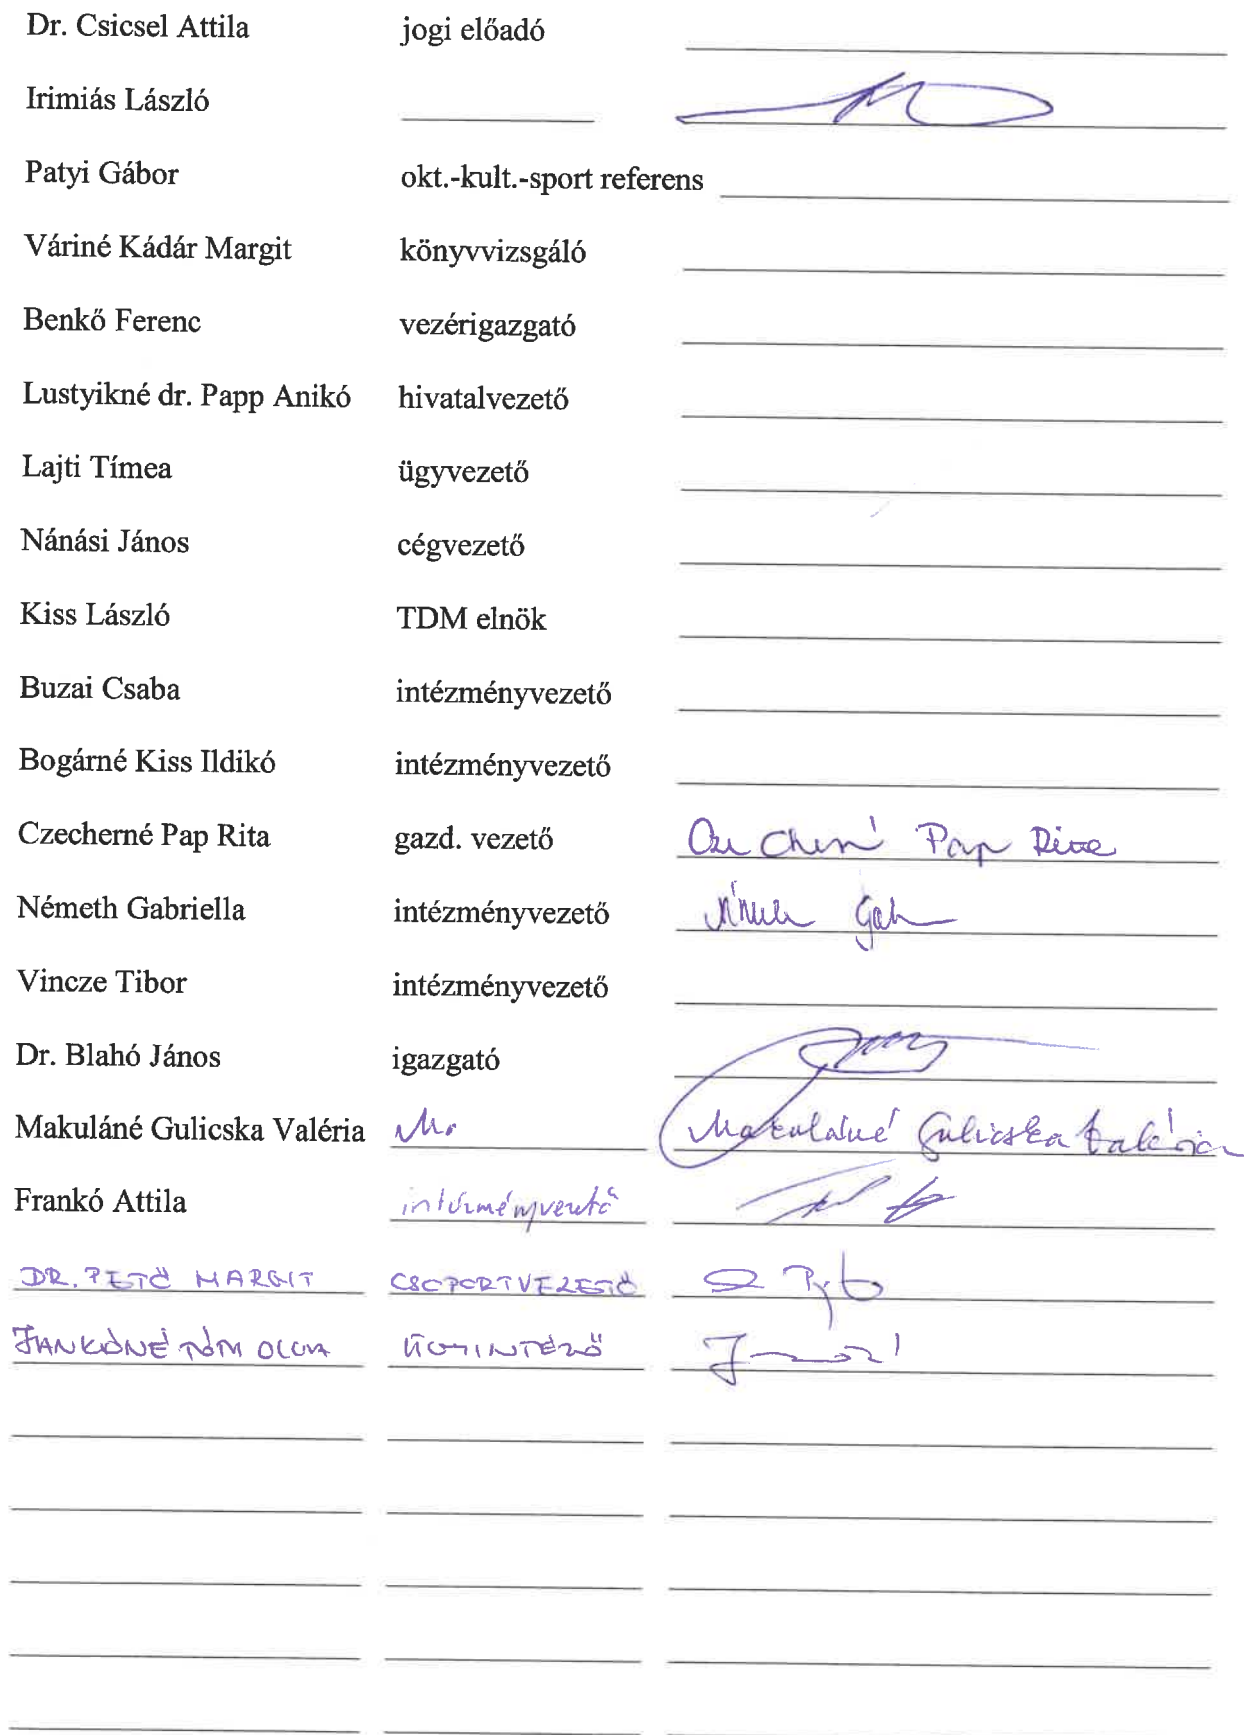 Dr. Csicsel Attila jogi előadó
Irimiás László
Patyi Gábor okt.-kult.-sport referens
Váriné Kádár Margit könyvvizsgáló
Benkő Ferenc vezérigazgató
Lustyikné dr. Papp Anikó hivatalvezető
Lajti Tímea ügyvezető
Nánási János cégvezető
Kiss László TDM elnök
Buzai Csaba intézményvezető
Bogárné Kiss Ildikó intézményvezető
Czecherné Pap Rita gazd. vezető Czecherné Pap Rita
Németh Gabriella intézményvezető
Vincze Tibor intézményvezető
Dr. Blahó János igazgató
Makuláné Gulicska Valéria Makuláné Gulicska Valéria
Frankó Attila intézményvezető
DR. PETŐ MARGIT CSOPORTVEZETŐ
JANKÓNÉ ÜGYINTÉZŐ